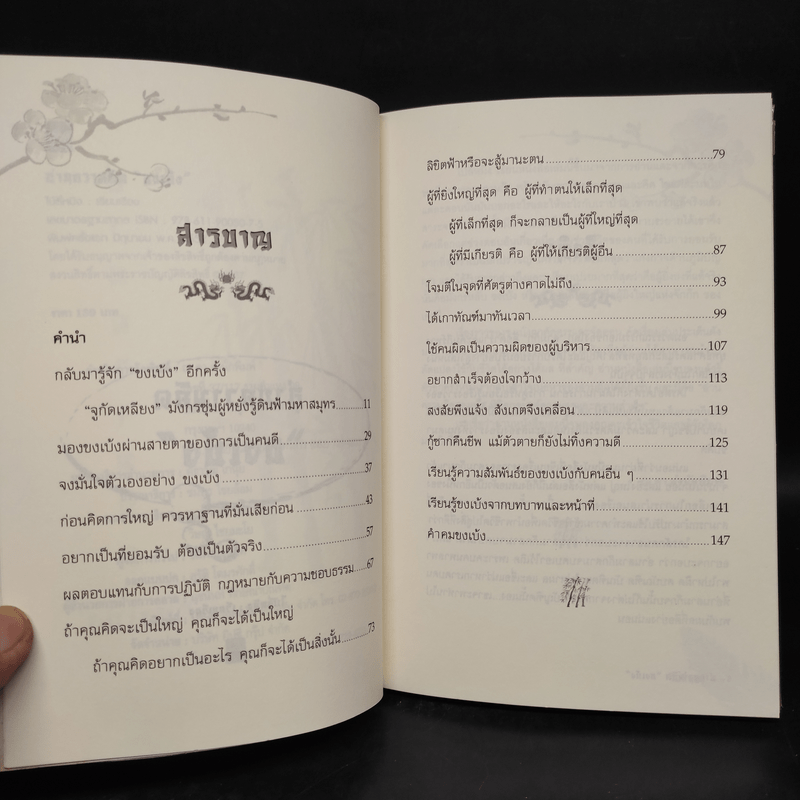 สารบาญ
คำนำ
กลับมารู้จัก “ขงเบ้ง” อีกครั้ง
“จูกัดเหลียง” มังกรซุ่มผู้หยั่งรู้ดินฟ้ามหาสมุทร..........11
มองขงเบ้งผ่านสายตาของการเป็นคนดี..........29
จงมั่นใจตัวเองอย่าง ขงเบ้ง..........37
ก่อนคิดการใหญ่ ควรหาฐานที่มั่นเสียก่อน..........43
อยากเป็นที่ยอมรับ ต้องเป็นตัวจริง..........57
ผลตอบแทนกับการปฏิบัติ กฎหมายกับความชอบธรรม..........67
ถ้าคุณคิดจะเป็นใหญ่ คุณก็จะได้เป็นใหญ่
ถ้าคุณคิดอยากเป็นอะไร คุณก็จะได้เป็นสิ่งนั้น..........73
ลิขิตฟ้าหรือจะสู้มานะตน..........79
ผู้ที่ยิ่งใหญ่ที่สุด คือ ผู้ที่ทำตนให้เล็กที่สุด
ผู้ที่เล็กที่สุด ก็จะกลายเป็นผู้ที่ใหญ่ที่สุด
ผู้ที่มีเกียรติ คือ ผู้ที่ให้เกียรติผู้อื่น..........87
โจมตีในจุดที่ศัตรูต่างคาดไม่ถึง..........93
ได้เกาทัณฑ์มาทันเวลา..........99
ใช้คนผิดเป็นความผิดของผู้บริหาร..........107
อยากสำเร็จต้องใจกว้าง..........113
สงสัยพึงแจ้ง สังเกตจึงเคลื่อน..........119
กู้ซากคืนชีพ แม้ตัวตายก็ยังไม่ทิ้งความดี..........125
เรียนรู้ความสัมพันธ์ของขงเบ้งกับคนอื่น ๆ..........131
เรียนรู้ขงเบ้งจากบทบาทและหน้าที่..........141
คำคมขงเบ้ง..........147